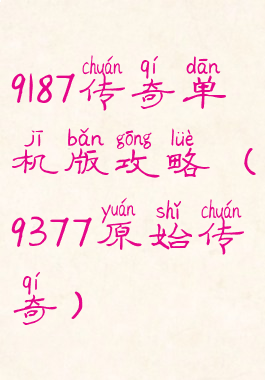 chuán qí dān
9187传奇单
jī bǎn gōng lüè
机版攻略（
yuán shǐ chuán
9377原始传
qí
奇）